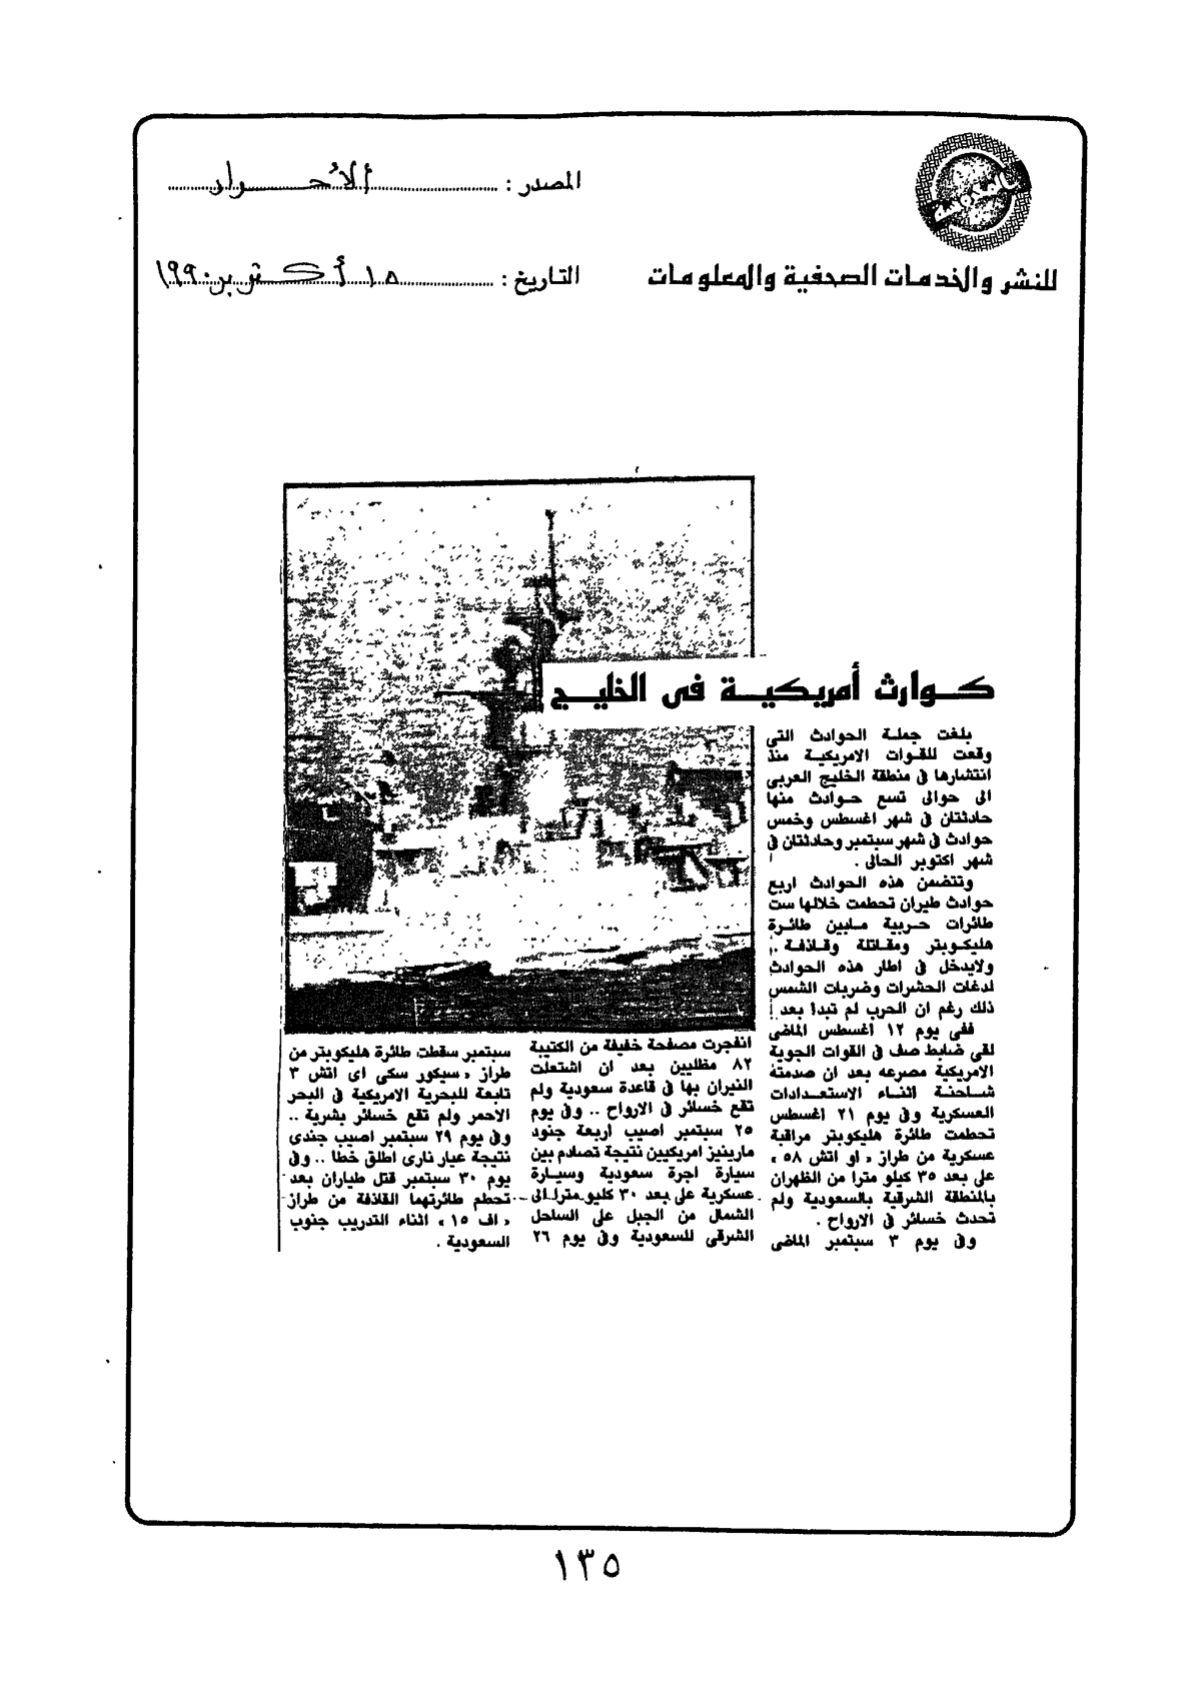 المصدر : الأحرار
للنشر والخدمات الصحفية والمعلومات
التاريخ : ١٥ أكتوبر ١٩٩٠
كوارث أمريكية فى الخليج
بلغت جملة الحوادث التى
وقعت للقوات الامريكية منذ
انتشارها فى منطقة الخليج العربى
الى حوالى تسع حوادث منها
حادثتان فى شهر اغسطس وخمس
حوادث فى شهر سبتمبر وحادثتان فى
شهر اكتوبر الحالى .
وتتضمن هذه الحوادث اربع
حوادث طيران تحطمت خلالها ست
طائرات حربية مابين طائرة
هليكوبتر ومقاتلة وقاذفة ..
ولايدخل فى اطار هذه الحوادث
لدغات الحشرات وضربات الشمس
ذلك رغم ان الحرب لم تبدأ بعد !
ففى يوم ١٢ اغسطس الماضى
لقى ضابط صف فى القوات الجوية
الامريكية مصرعه بعد ان صدمته
شاحنة اثناء الاستعدادات
العسكرية وفى يوم ٢١ اغسطس
تحطمت طائرة هليكوبتر مراقبة
عسكرية من طراز « او اتش ٥٨ »
على بعد ٣٥ كيلو مترا من الظهران
بالمنطقة الشرقية بالسعودية ولم
تحدث خسائر فى الارواح .
وفى يوم ٣ سبتمبر الماضى
انفجرت مصفحة خفيفة من الكتيبة
٨٢ مظليين بعد ان اشتعلت
النيران بها فى قاعدة سعودية ولم
تقع خسائر فى الارواح .. وفى يوم
٢٥ سبتمبر اصيب اربعة جنود
مارينيز امريكيين نتيجة تصادم بين
سيارة اجرة سعودية وسيارة
عسكرية على بعد ٣٠ كليو مترا الى
الشمال من الجبل على الساحل
الشرقى للسعودية وفى يوم ٢٦
سبتمبر سقطت طائرة هليكوبتر من
طراز « سيكور سكى اى اتش ٣
تابعة للبحرية الامريكية فى البحر
الاحمر ولم تقع خسائر بشرية ..
وفى يوم ٢٩ سبتمبر اصيب جندى
نتيجة عيار نارى اطلق خطا .. وفى
يوم ٣٠ سبتمبر قتل طياران بعد
تحطم طائرتهما القاذفة من طراز
« اف ١٥ » اثناء التدريب جنوب
السعودية .
١٣٥